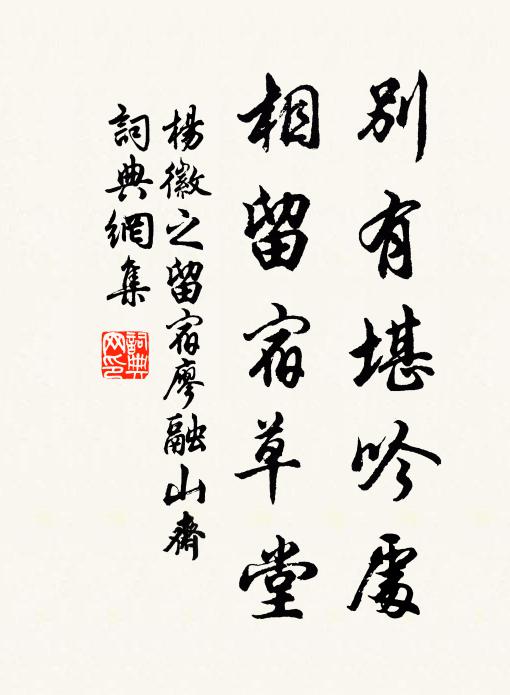 別有堪吟處
相留宿草堂
楊徽之留宿廖融山齋
詞典網集
詞典網印